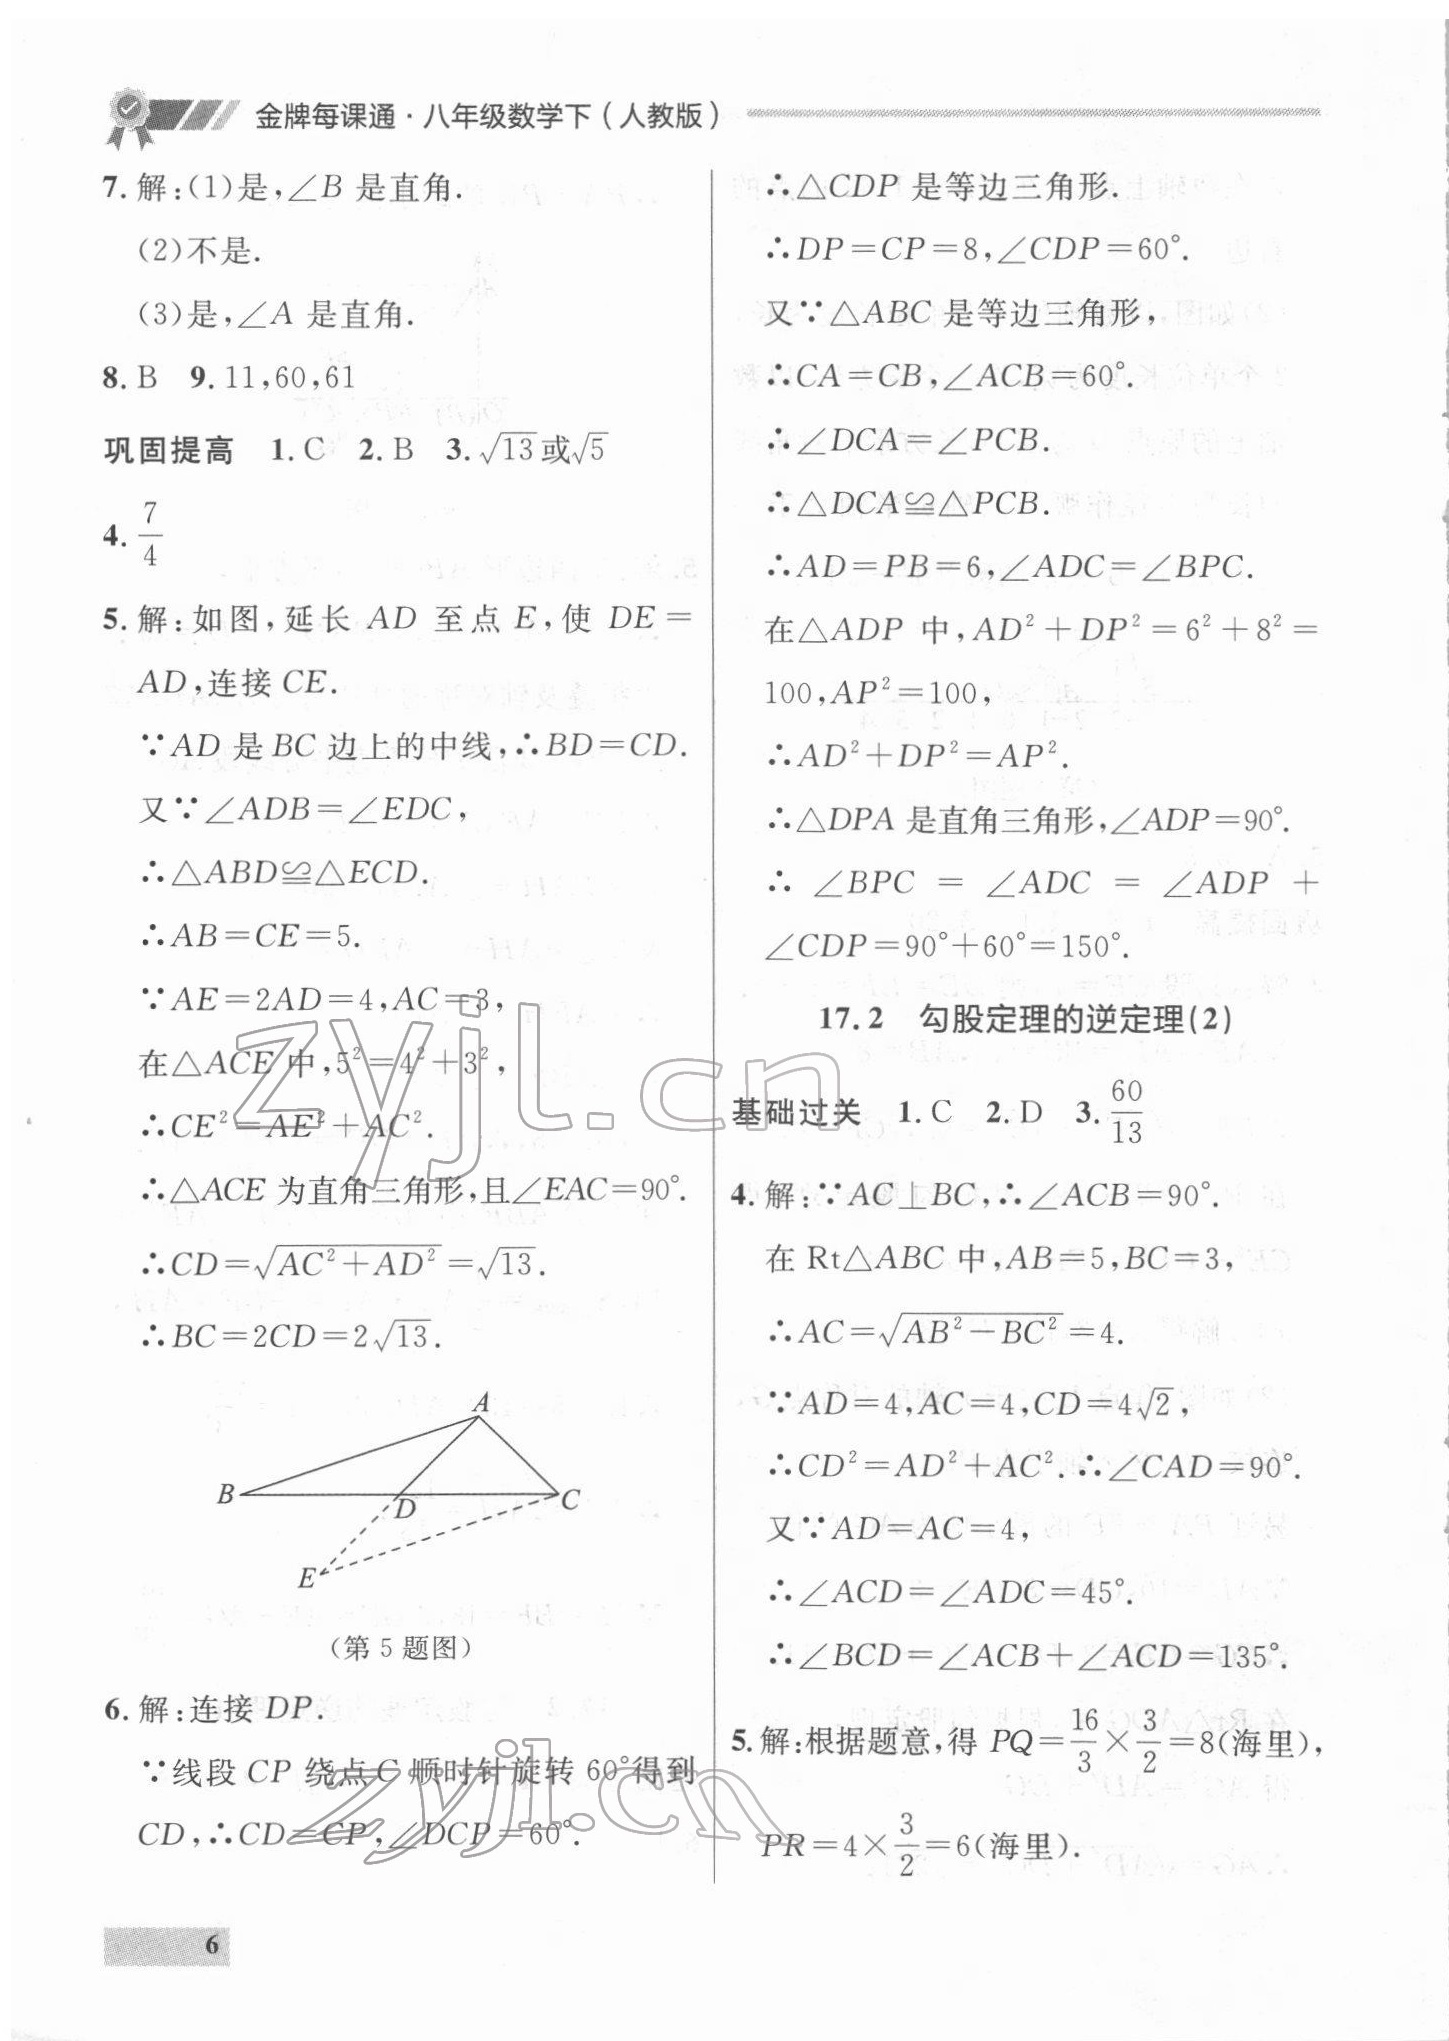 金牌每课通·八年级数学下(人教版)
7.解:(1)是,∠B 是直角.
(2)不是.
(3)是,∠A 是直角.
8.B 9.11,60,61
巩固提高 1.C 2.B 3.√13或√5
4.7/4
5.解:如图,延长 AD 至点 E,使 DE=
AD,连接 CE.
∵AD 是 BC 边上的中线,∴BD=CD.
又∵∠ADB=∠EDC,
∴△ABD≌△ECD.
∴AB=CE=5.
∵AE=2AD=4,AC=3,
在△ACE 中,5²=4²+3²,
∴CE²=AE²+AC².
∴△ACE 为直角三角形,且∠EAC=90°.
∴CD=√(AC²+AD²)=√13.
∴BC=2CD=2√13.
A
B
D
C
E
(第 5 题图)
6.解:连接 DP.
∵线段 CP 绕点 C 顺时针旋转 60°得到
CD,∴CD=CP,∠DCP=60°.
∴△CDP 是等边三角形.
∴DP=CP=8,∠CDP=60°.
又∵△ABC 是等边三角形,
∴CA=CB,∠ACB=60°.
∴∠DCA=∠PCB.
∴△DCA≌△PCB.
∴AD=PB=6,∠ADC=∠BPC.
在△ADP 中,AD²+DP²=6²+8²=
100,AP²=100,
∴AD²+DP²=AP².
∴△DPA 是直角三角形,∠ADP=90°.
∴∠BPC=∠ADC=∠ADP+
∠CDP=90°+60°=150°.
17.2 勾股定理的逆定理(2)
基础过关 1.C 2.D 3.60/13
4.解:∵AC⊥BC,∴∠ACB=90°.
在 Rt△ABC 中,AB=5,BC=3,
∴AC=√(AB²-BC²)=4.
∵AD=4,AC=4,CD=4√2,
∴CD²=AD²+AC².∴∠CAD=90°.
又∵AD=AC=4,
∴∠ACD=∠ADC=45°.
∴∠BCD=∠ACB+∠ACD=135°.
5.解:根据题意,得 PQ=16/3×3/2=8(海里),
PR=4×3/2=6(海里).
6
zyjl.cn
zyjl.cn